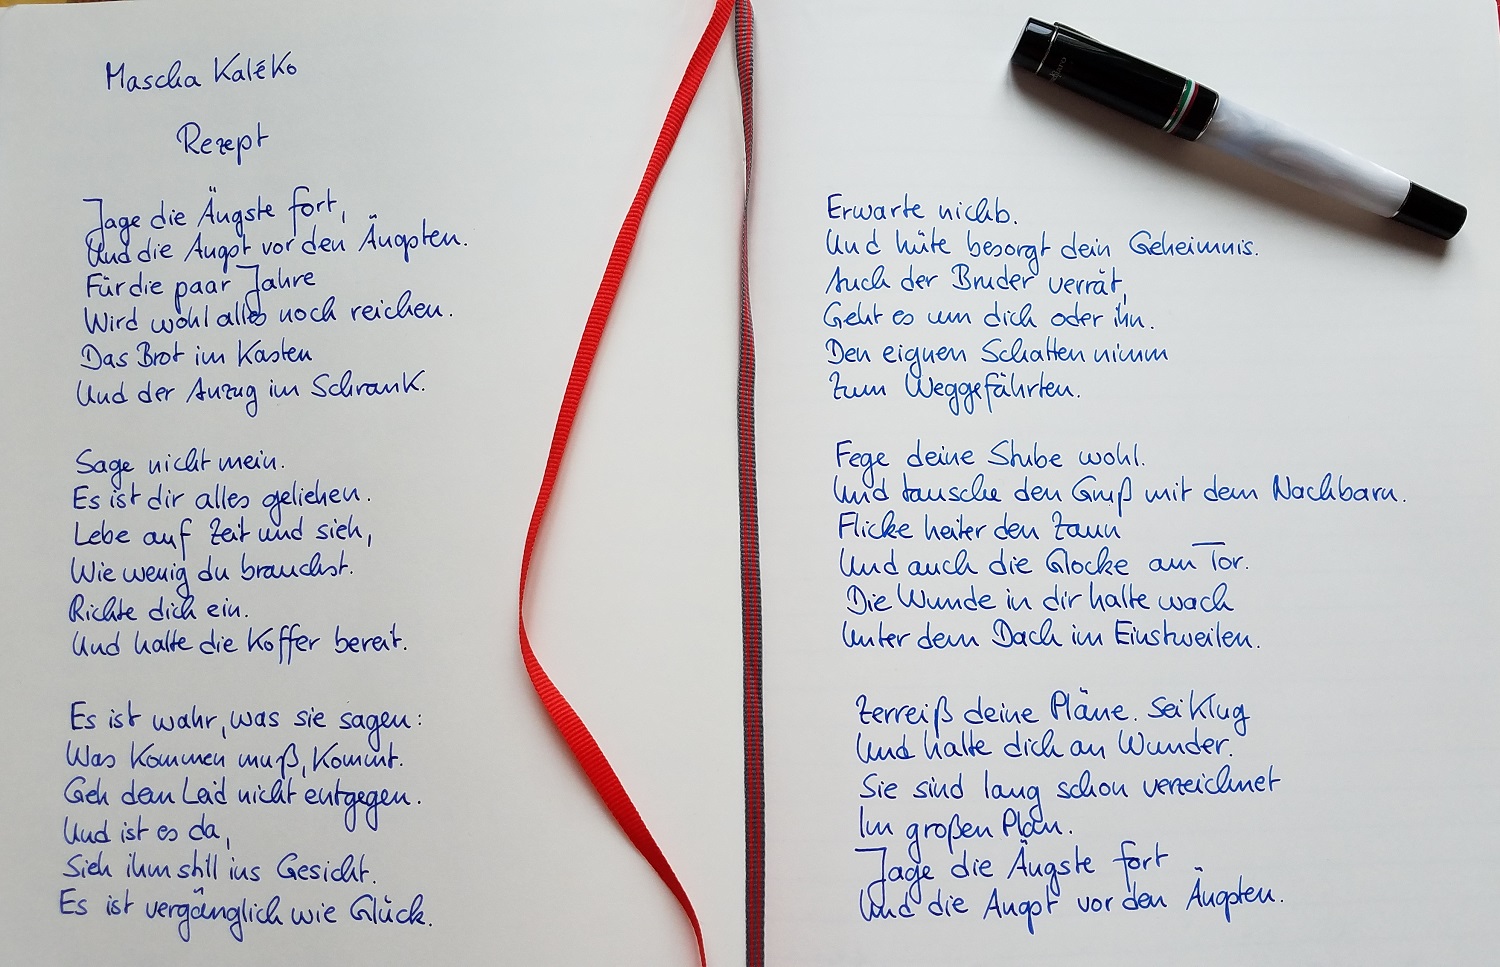 Mascha Kaléko
Rezept
Jage die Ängste fort,
Und die Angst vor den Ängsten.
Für die paar Jahre
Wird wohl alles noch reichen.
Das Brot im Kasten
Und der Anzug im Schrank.
Sage nicht mein.
Es ist dir alles geliehen.
Lebe auf Zeit und sieh,
Wie wenig du brauchst.
Richte dich ein.
Und halte die Koffer bereit.
Es ist wahr, was sie sagen:
Was kommen muß, kommt.
Geh dem Leid nicht entgegen.
Und ist es da,
Sieh ihm still ins Gesicht.
Es ist vergänglich wie Glück.
Erwarte nichts.
Und hüte besorgt dein Geheimnis.
Auch der Bruder verrät,
Geht es um dich oder ihn.
Den eignen Schatten nimm
Zum Weggefährten.
Fege deine Stube wohl.
Und tausche den Gruß mit dem Nachbarn.
Flicke heiter den Zaun
Und auch die Glocke am Tor.
Die Wunde in dir halte wach
Unter dem Dach im Einstweilen.
Zerreiß deine Pläne. Sei klug
Und halte dich an Wunder.
Sie sind lang schon verzeichnet
Im großen Plan.
Jage die Ängste fort
Und die Angst vor den Ängsten.